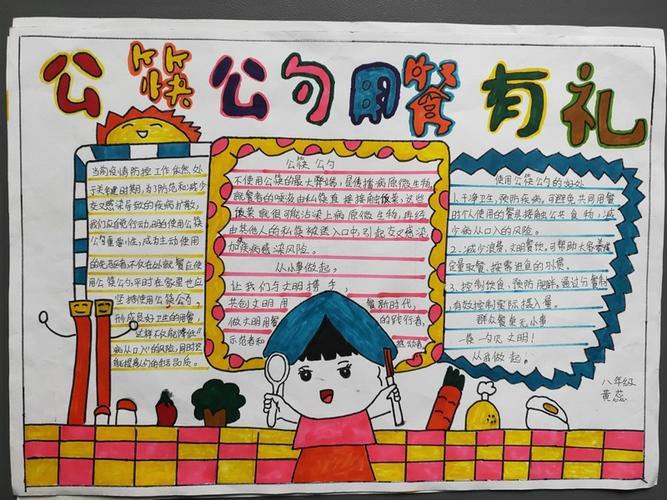 公筷公勺用餐有礼
当前疫情防控工作依然处
于关键时期,为了防范和减少
交叉感染导致的疾病扩散,
使用公筷
公勺重要性,成为主动使用
公筷公勺
坚持使用公筷公勺,
形成良好卫生的用餐
这样不仅能降低"
病从口入"的风险,同时
能提高人们的生活品质。
公筷公勺
不使用公筷的最大弊端,是传播病原微生物,
就餐者的唾液由私筷直接接触饭菜,这些
饭菜就很可能沾染上病原微生物,再经
由其他人的私筷被送入口中,引起交叉感染
加疾病感染风险。
从小事做起,
让我们与文明携手,
共创文明用
餐新时代,
做文明用餐
的践行者,
示范者和
推动者
使用公筷公勺的好处
1.干净卫生,预防疾病,可避免共同用餐
时个人使用的餐具接触公共食物,减
少病从口入的风险。
2.减少浪费,文明餐饮,可帮助大家
定量取餐,按需进食的习惯。
3.控制饮食,预防肥胖,通过分餐制
有效控制实际摄入量。
群众餐桌无小事
一筷一勺见文明!
从我做起。
八年级
黄蕊